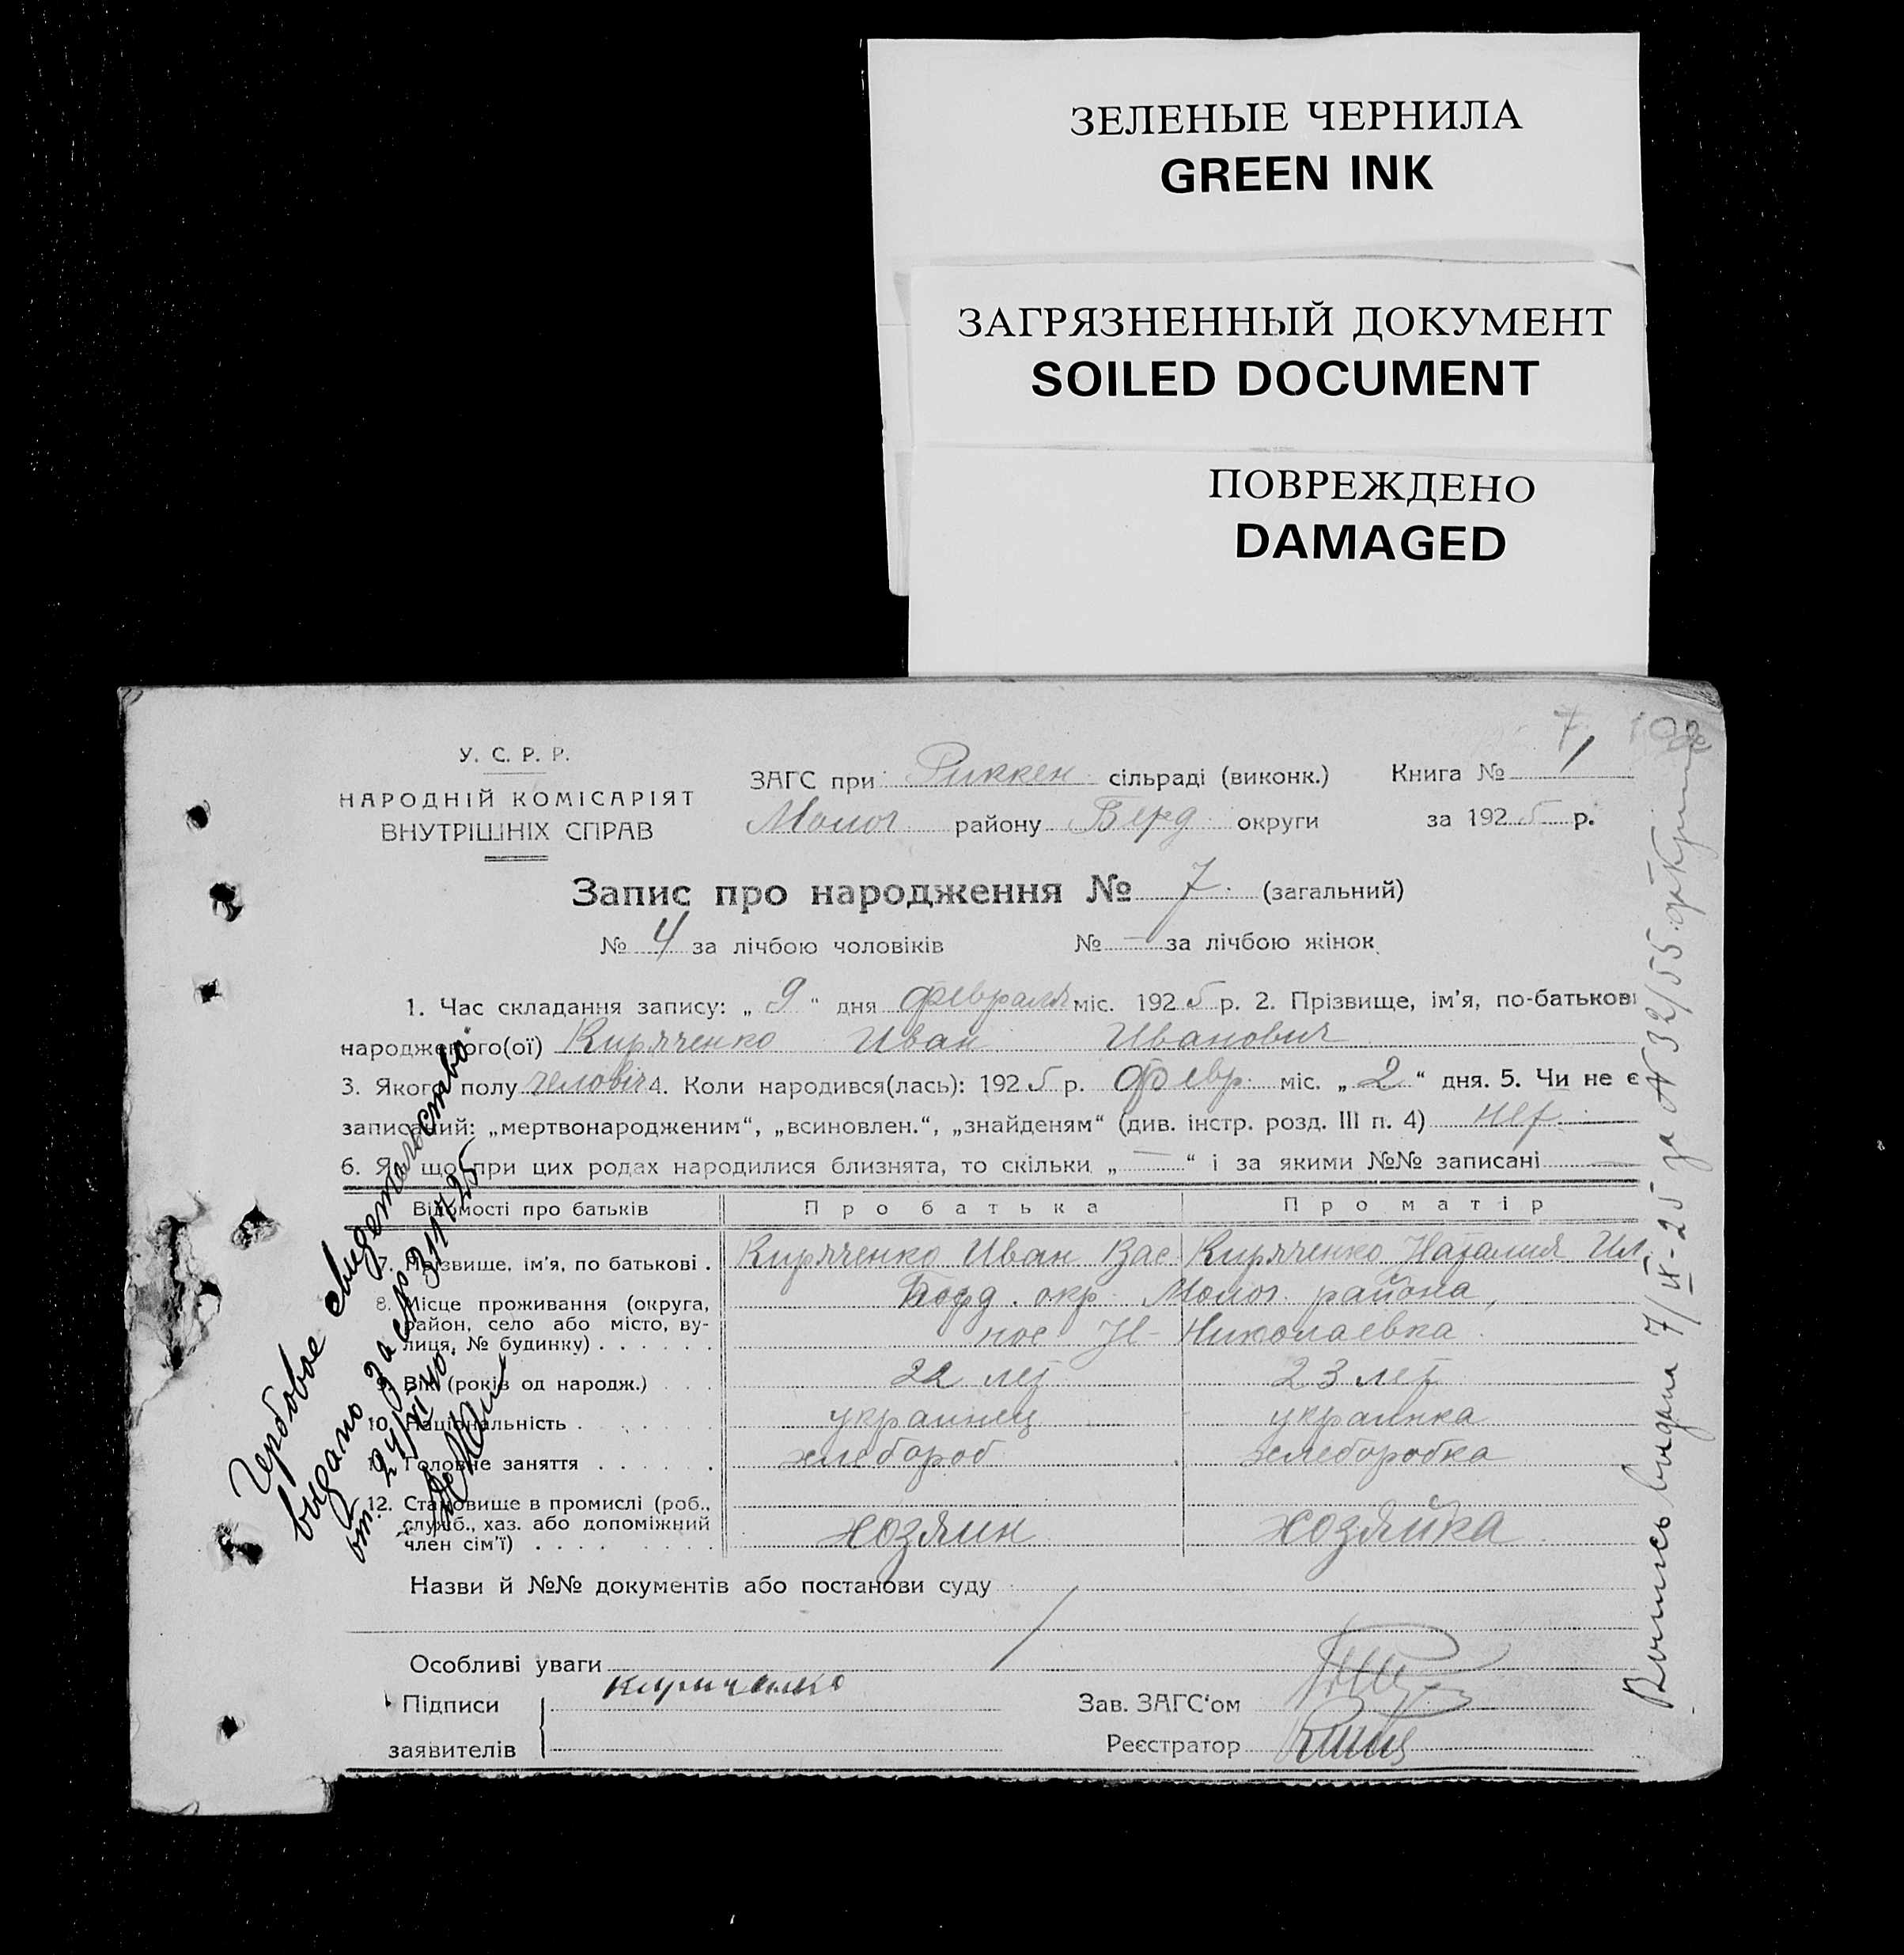 ЗЕЛЕНЫЕ ЧЕРНИЛА
GREEN INK
ЗАГРЯЗНЕННЫЙ ДОКУМЕНТ
SOILED DOCUMENT
ПОВРЕЖДЕНО
DAMAGED
У. С. Р. Р.
НАРОДНІЙ КОМІСАРІЯТ
ВНУТРІШНІХ СПРАВ
7
ЗАГС при Риккен сільраді (виконк.) Книга № 1
Молоч району Берд округи за 1925 р.
Запис про народження № 7. (загальний)
№ 4 за лічбою чоловіків № — за лічбою жінок
1. Час складання запису: „ 9 " дня февраля міс. 1925 р. 2. Прізвище, ім'я, по-батькові
народженого(ої) Киряченко Иван Иванович
3. Якого полу человіч 4. Коли народився(лась): 1925 р. февр. міс. „ 2 " дня. 5. Чи не є
записаний: „мертвонародженим“, „всиновлен.“, „знайденям“ (див. інстр. розд. III п. 4) нет
6. Як що при цих родах народилися близнята, то скільки „ — “ і за якими №№ записані —
Відомості про батьків Про батька Про матір
7. Прізвище, ім'я, по батькові . Киряченко Иван Вас. Киряченко Наталия Ил.
8. Місце проживання (округа, Берд. окр. Молоч. района,
район, село або місто, ву-
лиця, № будинку) . . . . . . пос Н-Николаевка
9. Вік (років од народж.) . . . 22 лет 23 лет
10. Національність . . . . . . украинец украинка
11. Головне заняття . . . . . . хлебороб хлеборобка
12. Становище в промислі (роб.,
служб., хаз. або допоміжний
член сім'ї) . . . . . . . . . хозяин хозяйка
Назви й №№ документів або постанови суду
Особливі уваги
Підписи Кириченко Зав. ЗАГС‘ом
заявителів Реєстратор
Гербовое свидетельство
выдано За
от. 24/
Выпись выдана 7/IX-25 за № 32/55